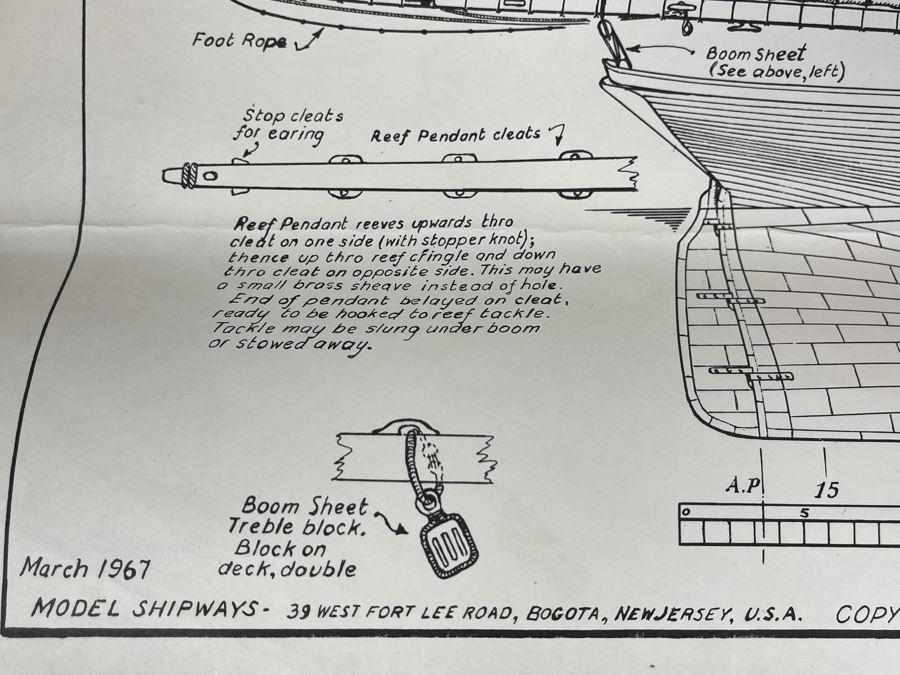 Foot Rope
Boom Sheet
(See above, left)
Stop cleats
for earing
Reef Pendant cleats
Reef Pendant reeves upwards thro
cleat on one side (with stopper knot);
thence up thro reef cringle and down
thro cleat on opposite side. This may have
a small brass sheave instead of hole.
End of pendant belayed on cleat,
ready to be hooked to reef tackle.
Tackle may be slung under boom
or stowed away.
A.P
15
0
5
Boom Sheet
Treble block.
Block on
deck, double
March 1967
MODEL SHIPWAYS - 39 WEST FORT LEE ROAD, BOGOTA, NEW JERSEY, U.S.A. COPY